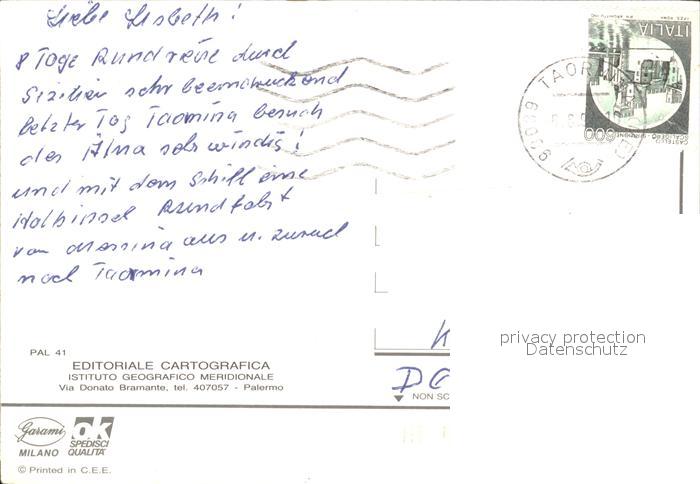 Liebe Lisbeth!
8 Tage Rundreise durch
Sizilien sehr beeindruckend
letzter Tag Taormina besuch
des Ätna sehr windig!
und mit dem Schiff eine
Halbinsel Rundfahrt
von Messina aus u. zurück
nach Taormina
ITALIA
600
TAORMINA
98039
PAL 41
EDITORIALE CARTOGRAFICA
ISTITUTO GEOGRAFICO MERIDIONALE
Via Donato Bramante, tel. 407057 - Palermo
NON SC
privacy protection
Datenschutz
Garami
MILANO
ok
SPEDISCI
QUALITÀ
© Printed in C.E.E.